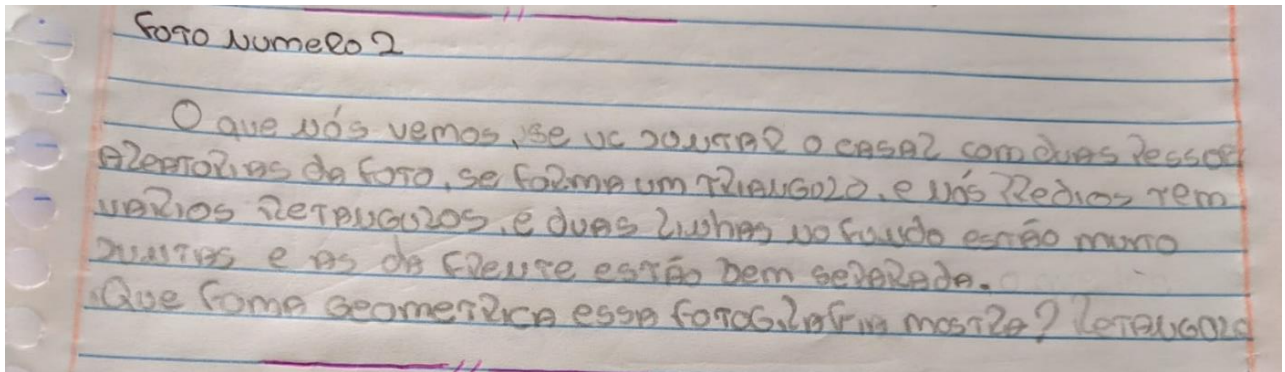 Foto Numero 2
O que nós vemos, se vc juntar o casal com duas pessoas
aleatorias da foto, se forma um triangolo, e nós predios tem
varios retangulos, e duas linhas no fundo estão muito
juntas e as da frente estão bem separada.
Que foma geometrica essa fotografia mostra? retangolo